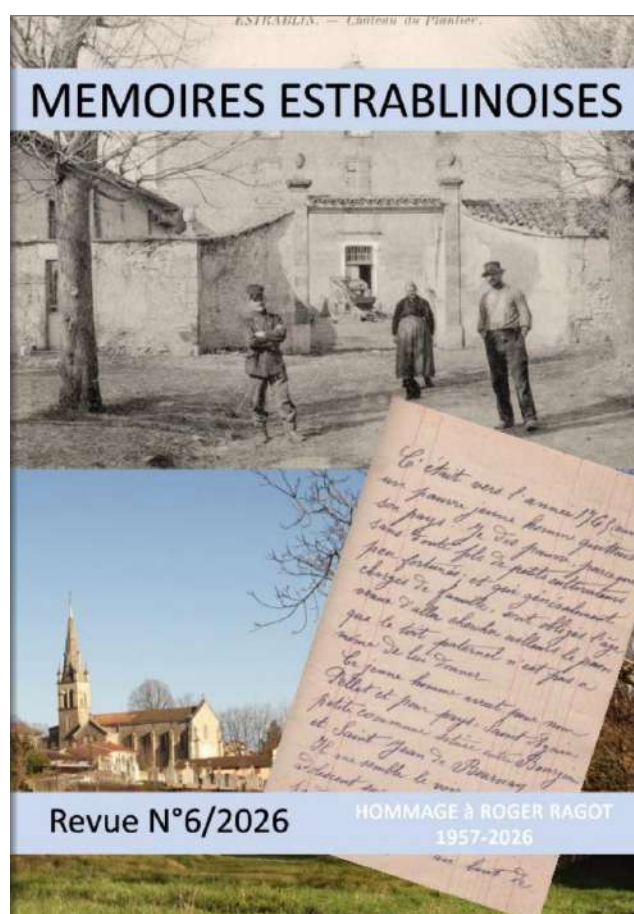 ESTRABLIN. — Château du Plantier.
MEMOIRES ESTRABLINOISES
C'était vers l'année
un pauvre jeune homme quittait
son pays. Je dis pauvre parce que
sans doute fils de petits cultivateurs
peu fortunés et qui généralement
chargés de famille, sont obligés
d'aller chercher ailleurs le pain
que le toit paternel n'est pas à
même de leur donner
Ce jeune homme avait pour nom
et pour pays, Saint Agnin
petite commune située entre Bourgoin
et Saint Jean de Bournay
Il me semble le voir
Revue N°6/2026
HOMMAGE à ROGER RAGOT
1957-2026